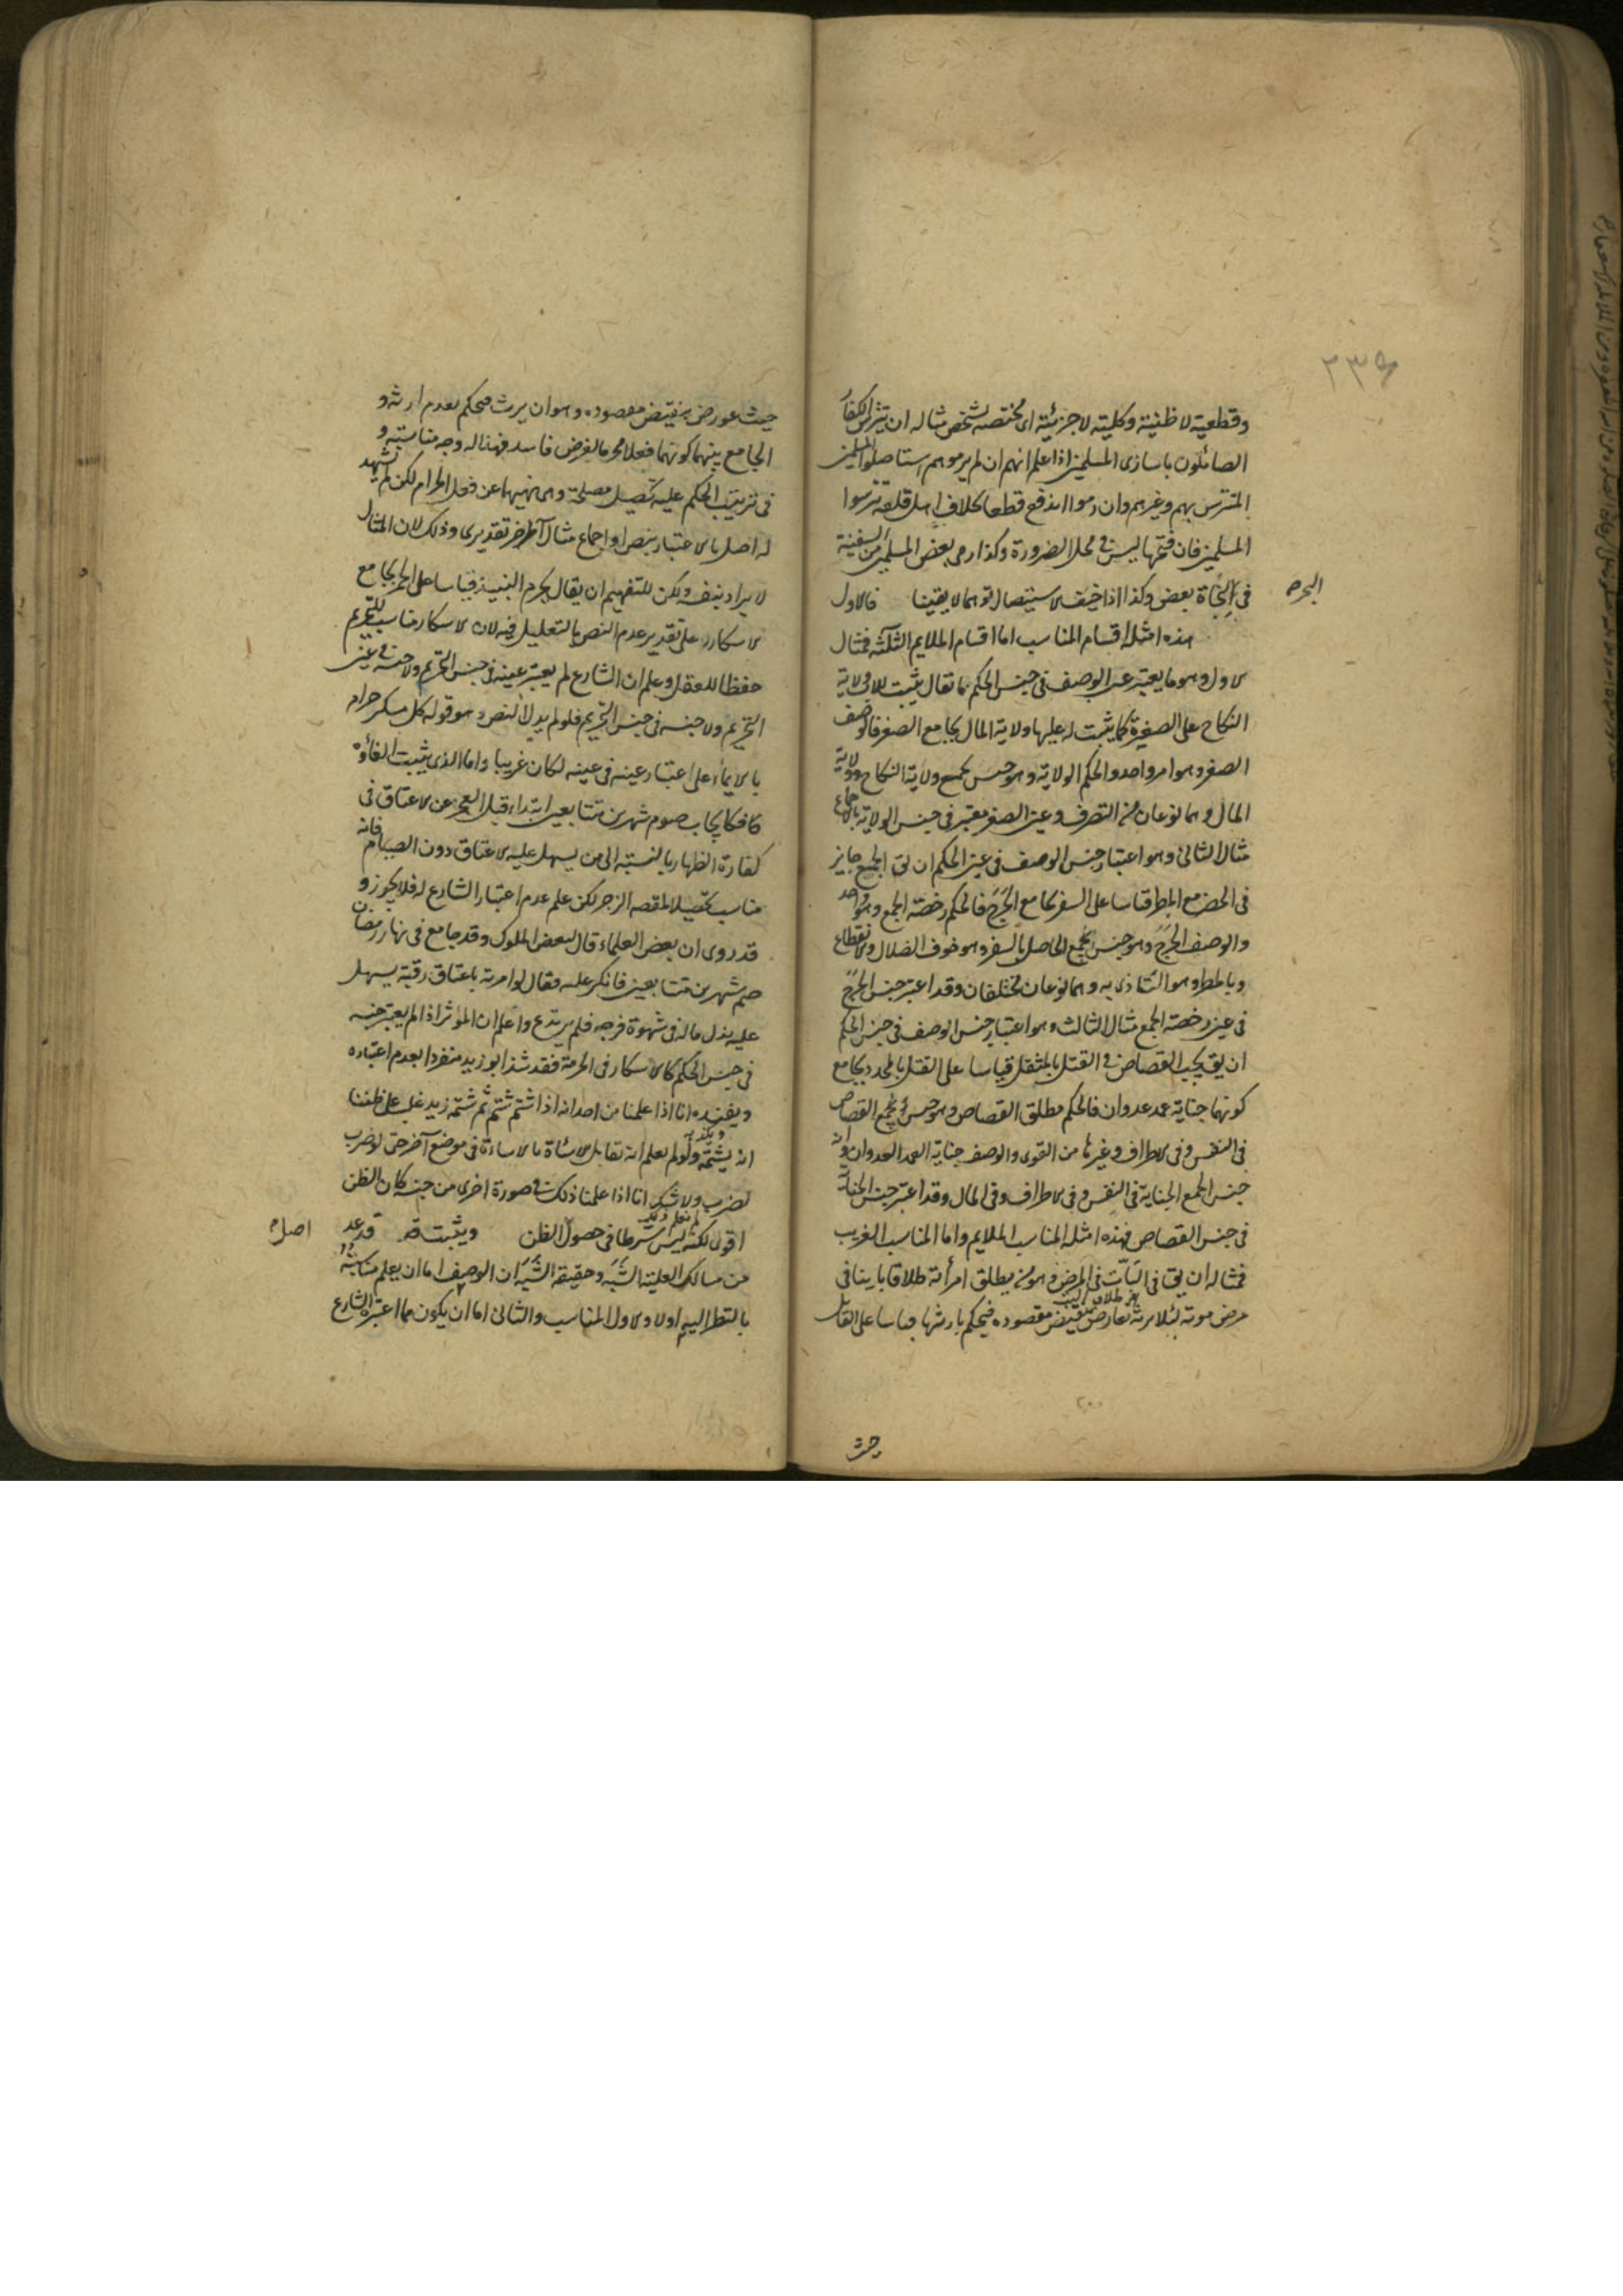 ٢٣٥
وقطعية لا ظنية وكلية لا جزئية اى مختصة بشخص مثاله ان يتترس الكفار
الصائلون باسارى المسلمين اذا علم انهم ان لم يرموهم استاصلوا المسلمين
المتترس بهم وغيرهم وان رموا اندفع قطعا بخلاف اهل قلعة تترسوا
المسلمين فان فتحها ليس فى محل الضرورة وكذا رمى بعض المسلمين من السفينة
فى البحر لنجاة بعض وكذا اذا خيف الاستيصال توهما لا يقينا فالاول
هذه امثلة اقسام المناسب اما اقسام الملايم الثلثة فمثال
الاول وهو ما يعتبر عين الوصف فى جنس الحكم ما تقال يثبت للاب ولاية
النكاح على الصغيرة كما يثبت له عليها ولاية المال بجامع الصغر فالوصف
الصغر وهو امر واحد والحكم الولاية وهو جنس يجمع ولاية النكاح وولاية
المال وهما نوعان من التصرف وعين الصغر معتبر فى جنس الولاية بالاجماع
مثال الثانى وهو اعتبار جنس الوصف فى عين الحكم ان يق الجمع جايز
فى الحضر مع المطر قياسا على السفر بجامع الحرج فالحكم رخصة الجمع وهو واحد
والوصف الحرج وهو جنس يجمع الحاصل بالسفر وهو خوف الضلال والانقطاع
وبالمطر وهو التأذى به وهما نوعان مختلفان وقد اعتبر جنس الحرج
فى عين رخصة الجمع مثال الثالث وهو اعتبار جنس الوصف فى جنس الحكم
ان يق يجب القصاص فى القتل بالمثقل قياسا على القتل بالمحدد بجامع
كونهما جناية عمد عدوان فالحكم مطلق القصاص وهو جنس يجمع القصاص
فى النفس وفى الاطراف وغيرها من القوى والوصف جناية العمد العدوان وانه
جنس يجمع الجناية فى النفس وفى الاطراف وفى المال وقد اعتبر جنس الجناية
فى جنس القصاص فهذه امثلة المناسب الملايم واما المناسب الغريب
فمثاله ان يق فى البات فى المرض وهو من يطلق امرأته طلاقا باينا فى
مرض موته لئلا يرثه يعارض بنقيض مقصوده فيحكم بارثها قياسا على القاتل
حيث
حيث عورض بنقيض مقصوده وهو ان يرث فيحكم بعدم ارثه و
الجامع بينهما كونهما فعلا محرما لغرض فاسد فهذا له وجه مناسبة و
فى ترتيب الحكم عليه تحصيل مصلحة وهى نهيهما عن فعل الحرام لكن لم يشهد
له اصل بالاعتبار بنص او اجماع مثال آخر تقديرى وذلك لان المثال
لا يراد بنفسه ولكن للتفهيم ان يقال يحرم النبيذ قياسا على الخمر بجامع
الاسكار على تقدير عدم النص بالتعليل فيه لان الاسكار مناسب للتحريم
حفظا للعقل وعلم ان الشارع لم يعتبر عينه فى جنس التحريم ولا جنسه فى عين
التحريم ولا جنسه فى جنس التحريم فلو لم يدل النص وهو قوله كل مسكر حرام
بالايماء على اعتبار عينه فى عينه لكان غريبا واما الذى يثبت الغاؤه
فكايجاب صوم شهرين متتابعين ابتداء قبل العجز عن الاعتاق فى
كفارة الظهار بالنسبة الى من يسهل عليه الاعتاق دون الصيام فانه
مناسب تحصيلا لمقصد الزجر لكن علم عدم اعتبار الشارع له فلا يجوز و
قد روى ان بعض العلماء قال لبعض الملوك وقد جامع فى نهار رمضان
صم شهرين متتابعين فانكر عليه فقال لو امرته باعتاق رقبة يسهل
عليه بذل ماله فى شهوة فرجه فلم يرتدع واعلم ان المؤثر اذا لم يعتبر جنسه
فى جنس الحكم كالاسكار فى الحرمة فقد شذ ابو زيد منفردا بعدم اعتباره
ويفيده انا اذا علمنا من احد انه اذا شتم شتم ثم شتمه زيد غلب على ظننا
انه يشتمه ولو لم يعلم انه تقابل الاساءة بالاساءة فى موضع آخر حتى لو ضرب
لضرب ولا شك انا اذا علمنا ذلك فى صورة اخرى من جنسه كان الظن
اقوى لكنه ليس شرطا فى حصول الظن ويثبت قد عد
من مسالك العلية الشبه وحقيقة الشبه ان الوصف اما ان يعلم مناسبته
بالنظر اليه اولا والاول المناسب والثانى اما ان يكون مما اعتبره الشارع